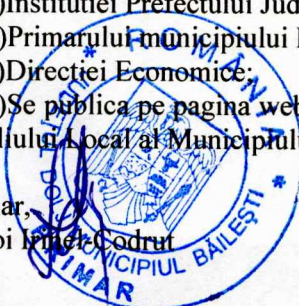 )Instituției Prefectului Jud
)Primarului municipiului
)Direcției Economice;
)Se publica pe pagina web
liului Local al Municipiul
ar,
oi Irinel-Codrut
ROMÂNIA
JUDEȚUL DOLJ
MUNICIPIUL BĂILEȘTI
PRIMAR